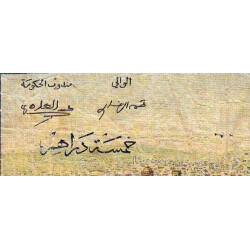 الوالي مندوب الحكومة
خمسة دراهم